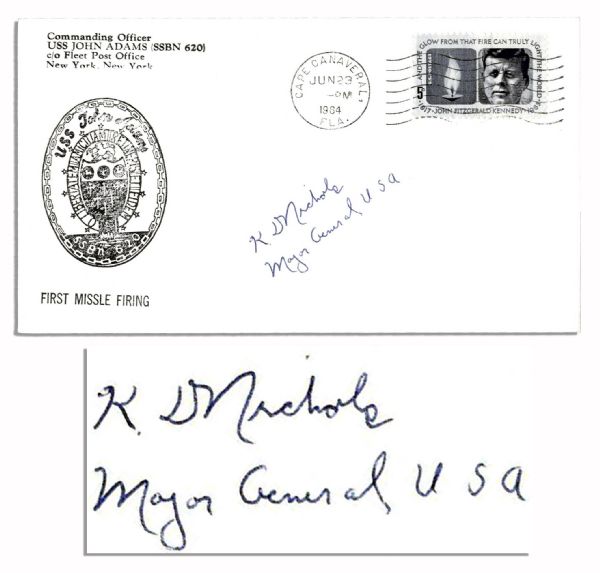 Commanding Officer
USS JOHN ADAMS (SSBN 620)
c/o Fleet Post Office
New York, New York
USS John Adams
SSBN 620
FIRST MISSLE FIRING
CAPE CANAVERAL,
JUN 23
-PM
1964
FLA.
AND THE GLOW FROM THAT FIRE CAN TRULY LIGHT THE WORLD
5
JOHN FITZGERALD KENNEDY
K D Nichols
Major General USA
K. D Nichols
Major General, USA